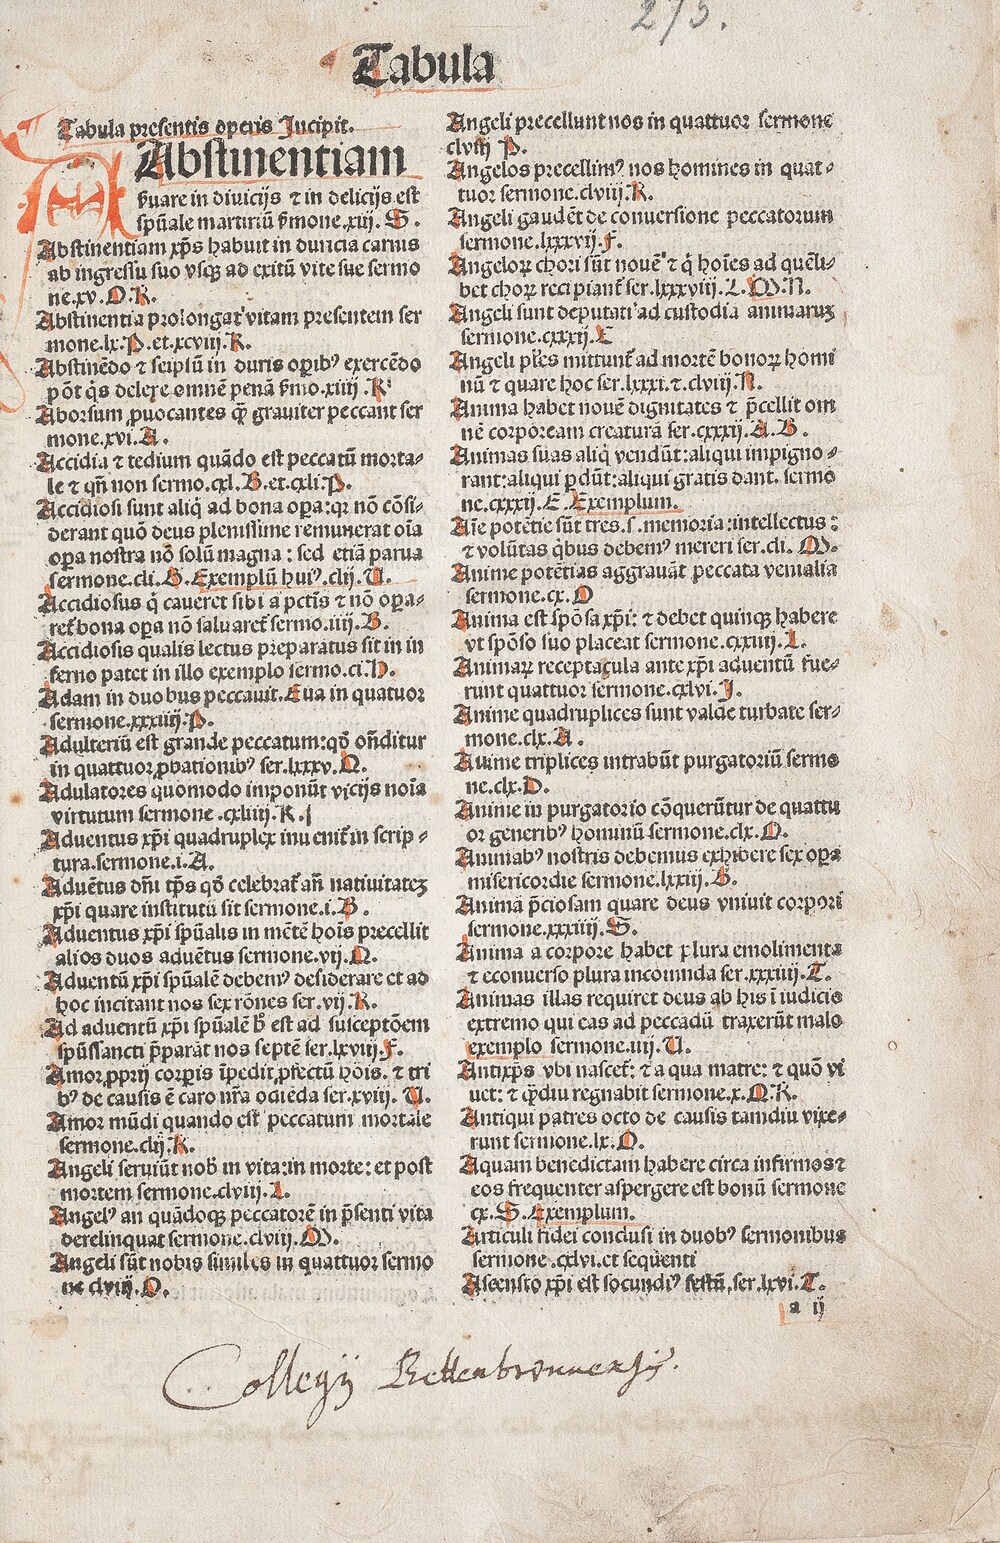 275.
Tabula
Tabula presentis operis Incipit.
Abstinentiam
ẜuare in diuicijs ⁊ in delicijs est
spũale martiriũ ẜmone.xvij. S.
Abstinentiam xp̃s habuit in duricia carnis
ab ingressu suo vsqꝫ ad exitũ vite sue sermo
ne.xv. O.K.
Abstinentia prolongat᷑ vitam presentem ser
mone.lx.P.et.xcviij.K.
Abstinẽdo ⁊ seipsũ in duris oꝑibꝰ exercẽdo
põt q̇s delere omnẽ penã ẜmo.xiiij.K
Aborsum ꝓuocantes ꝙ̃ grauiter peccant ser
mone.xvi.A.
Accidia ⁊ tedium quãdo est peccatũ morta-
le ⁊ qñ non sermo.cxl.B.et.cxli.P.
Accidiosi sunt aliq̇ ad bona oꝑa:qꝛ nõ cõsi-
derant quõ deus plenissime remunerat oĩa
oꝑa nostra nõ solũ magna : sed etiã parua
sermone.cli.G.Exemplũ huiꝰ.clij.U.
Accidiosus q̇ caueret sibi a pctĩs ⁊ nõ oꝑa-
ret᷑ bona oꝑa nõ saluaret᷑ sermo.iiij.B.
Accidiosis qualis lectus preparatus sit in in
ferno patet in illo exemplo sermo.ci.H.
Adam in duobus peccauit.Eua in quatuor
sermone.xxxiiij.P.
Adulteriũ est grande peccatum:qđ oñditur
in quattuor ꝓbationibꝰ ser.lxxxv.Q.
Adulatores quomodo imponũt vicijs noĩa
virtutum sermone.cxliij.K.
Aduentus xp̃i quadruplex inuenit᷑ in scrip-
tura.sermone.i.A.
Aduẽtus dñi tp̃s qđ celebrat᷑ añ natiuitatẽ
xp̃i quare institutũ sit sermone.i.B.
Aduentus xp̃i spũalis in mẽtẽ hoĩs precellit
alios duos aduẽtus sermone.vij.Q.
Aduentũ xp̃i spũalẽ debemꝰ desiderare et ad
hoc incitant nos sex rõnes ser.vij.R.
Ad aduentũ xp̃i spũalẽ ꝗ̃ est ad susceptõem
spũssancti p̃parãt nos septẽ ser.lxviij.F.
Amor ꝓprij corꝑis ĩpedit ꝓfectũ hõis. ⁊ tri
bꝰ de causis ẽ caro nr̃a odiẽda ser.xviij. U.
Amor mũdi quando est peccatum mortale
sermone.clij.K.
Angeli seruiũt nob̃ in vita:in morte: et post
mortem sermone.clviij.L.
Angelꝰ an quãdoqꝫ peccatorẽ in p̃senti vita
derelinquat sermone.clviij.M.
Angeli sũt nobis similes in quattuor sermo
ne clviij.O.
Angeli precellunt nos in quattuor sermone
clviij P.
Angelos precellimꝰ nos homines in quat-
tuor sermone.clviij.R.
Angeli gaudẽt de conuersione peccatorum
sermone.lxxxvij.F.
Angeloꝝ chori sũt nouẽ ⁊ q̇ hoĩes ad quẽli-
bet choꝝ recipiant᷑ ser.lxxxviij.L.M.N.
Angeli sunt deputati ad custodiã animarum
sermone.cxxxij.E
Angeli pl̃es mittunt᷑ ad mortẽ bonoꝝ homi
nũ ⁊ quare hoc ser.lxxxi.⁊.clviij.N.
Anima habet nouẽ dignitates ⁊ p̃cellit om
nẽ corpoream creaturã ser.cxxxij.A.B.
Animas suas aliq̇ vendũt:aliqui impigno-
rant:aliqui ꝑdũt:aliqui gratis dant. sermo
ne.cxxxij.E.Exemplum.
Aĩe potẽtie sũt tres.s.memoria:intellectus:
⁊ volũtas q̇bus debemꝰ mereri ser.cli. M.
Anime potẽtias aggrauãt peccata venialia
sermone.cx.O
Anima est spõsa xp̃i: ⁊ debet quinqꝫ habere
vt spõso suo placeat sermone.cxxiij.L.
Animaꝝ receptacula ante xp̃i aduentũ fue-
runt quattuor sermone.cxlvi.I.
Anime quadruplices sunt valde turbate ser-
mone.clx.A.
Anime triplices intrabũt purgatoriũ sermo
ne.clx.D.
Anime in purgatorio cõquerũtur de quattu
or generibꝰ hominũ sermone.clx.O.
Animabꝰ nostris debemus exhibere sex oꝑa
misericordie sermone.lxxiij.G.
Animã p̃ciosam quare deus vniuit corpori
sermone.xxxiiij.S.
Anima a corpore habet plura emolimenta
⁊ econuerso plura incõmoda ser.xxxiiij.T.
Animas illas requiret deus ab his ĩ iudicio
extremo qui eas ad peccadũ traxerũt malo
exemplo sermone.iiij.U.
Antixp̃s vbi nascet᷑: ⁊ a qua matre: ⁊ quõ vi
uet: ⁊ ꝙ̃diu regnabit sermone.x.Q.R.
Antiqui patres octo de causis tamdiu vixe-
runt sermone.lx.O.
Aquam benedictam habere circa infirmos ⁊
eos frequenter aspergere est bonũ sermone
cx.S.Exemplum.
Articuli fidei conclusi in duobꝰ sermonibus
sermone.cxlvi.et seq̃uenti
Ascensio xp̃i est iocundũ festũ.ser.lxvi.T.
a ij
Collegij